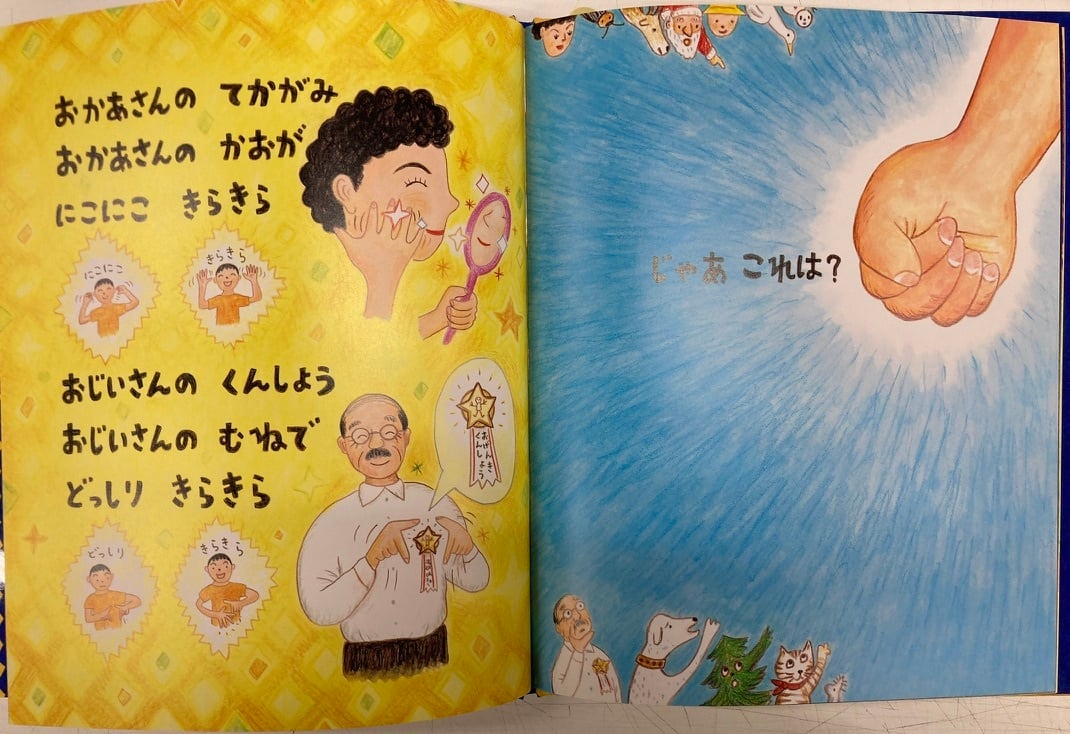 おかあさんの てかがみ
おかあさんの かおが
にこにこ きらきら
にこにこ
きらきら
おじいさんの くんしょう
おじいさんの むねで
どっしり きらきら
おげんき
くんしょう
どっしり
きらきら
じゃあ これは?